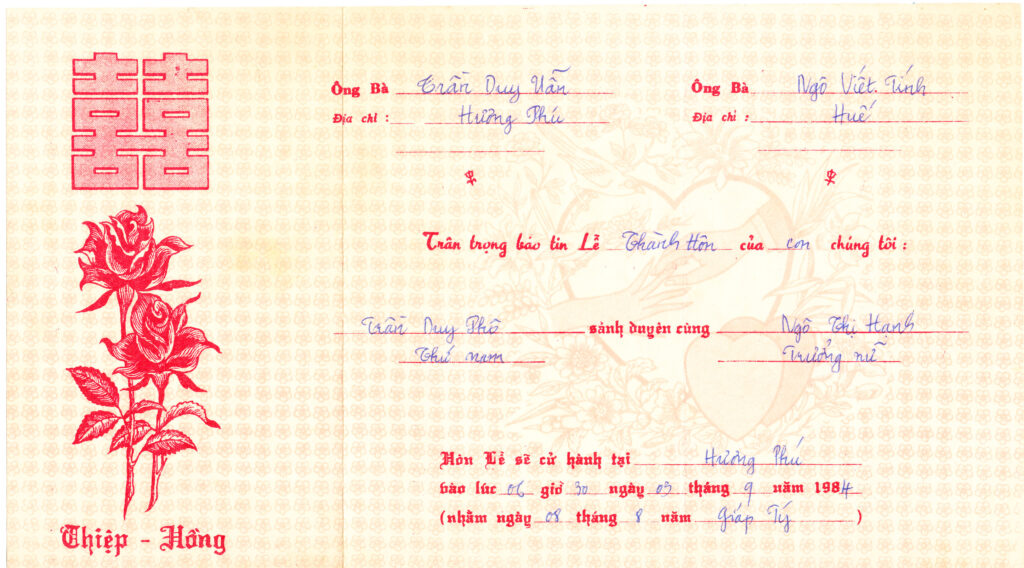 囍
Thiệp - Hồng
Ông Bà Trần Duy Uẫn
Địa chỉ : Hương Phú
Ông Bà Ngô Viết Tính
Địa chỉ : Huế
Trân trọng báo tin Lễ Thành Hôn của con chúng tôi :
Trần Duy Phô sánh duyên cùng Ngô Thị Hạnh
Thứ nam Trưởng nữ
Hôn Lễ sẽ cử hành tại Hương Phú
vào lúc 06 giờ 30 ngày 03 tháng 9 năm 1984
(nhằm ngày 08 tháng 8 năm Giáp Tý )